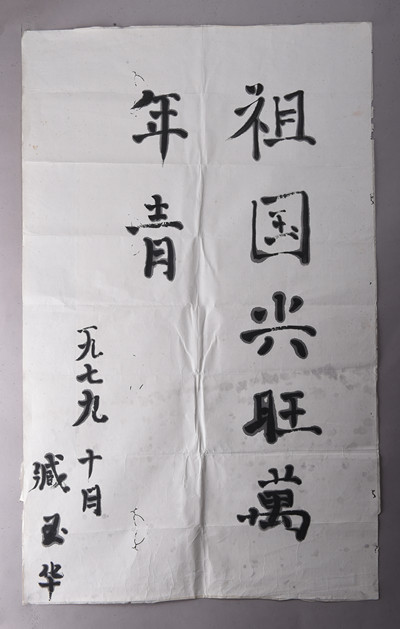 祖国兴旺萬
年青
一九七九
十月
臧玉华